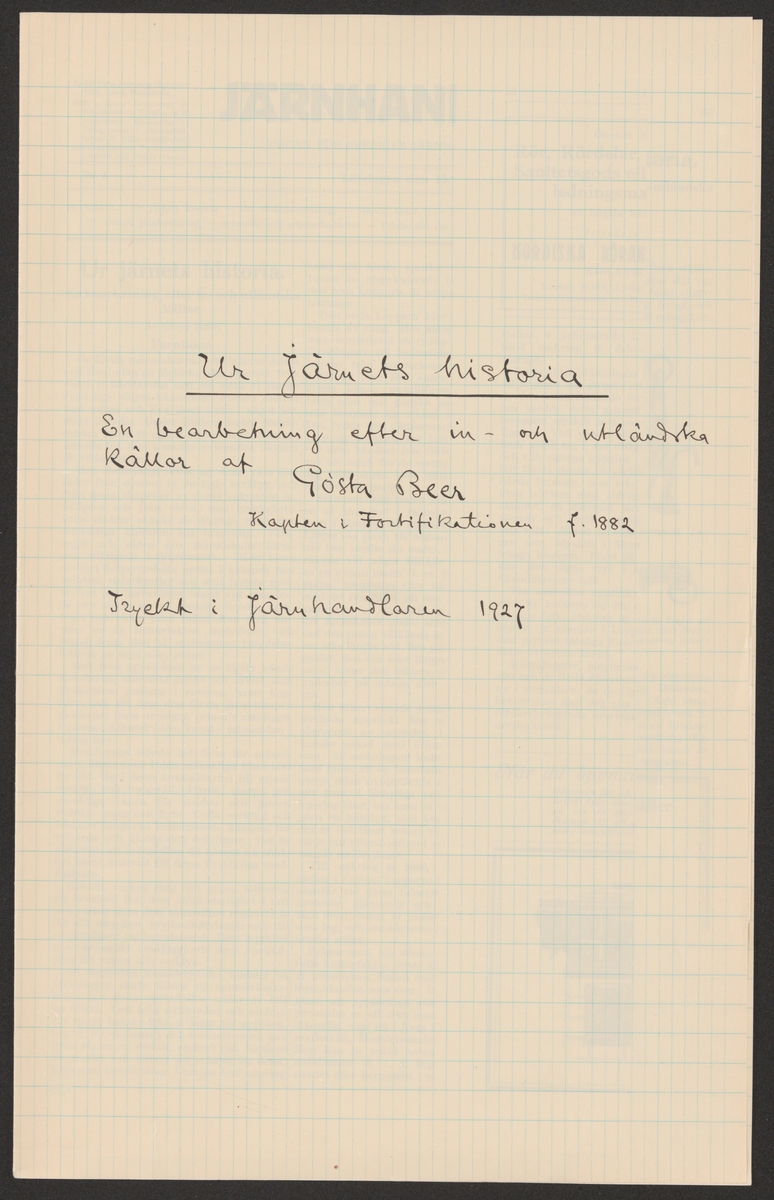 Ur järnets historia
En bearbetning efter in- och utländska
källor af
Gösta Beer
Kapten i Fortifikationen f. 1882
Tryckt i Järnhandlaren 1927